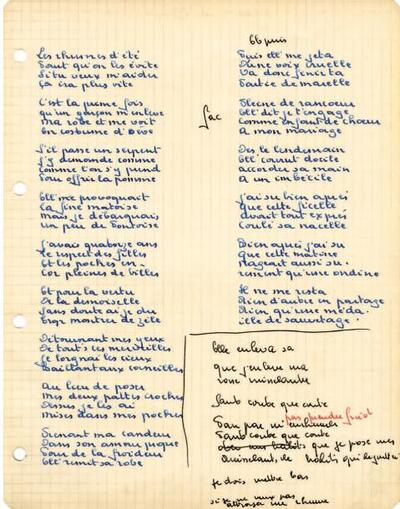 Les rhumes d'été
Faut qu'on les évite
Si tu veux m'aider
Ça ira plus vite
C'est la première fois
qu'un garçon m'enlève
ma robe et me voit
En costume d'Eve
S'il passe un serpent
J'y demande comme
comme l'on s'y prend
Pour offrir la pomme
Ell' me provoquait
la fine matoise
Mais je débarquais
un peu de Pontoise
J'avais quatorze ans
le respect des filles
Et les poches en-
cor pleines de billes
Et pour la vertu
De la demoiselle
Sans doute ai je du
trop montrer de zèle
Détournant mes yeux
De tout's ces merveilles
Je lorgnai les cieux
Baillant aux corneilles
Au lieu de poser
Mes deux pattes croches
Dessus je les ai
Mises dans mes poches
Prenant ma candeur
Dans son amour propre
Pour de la froideur
Ell' remit sa robe
Et puis
Puis ell' me jeta
D'une voix cruelle
Va donc jouer ta
Partie de marelle
sac
Pleine de rancoeur
Ell' dit je t'engage
comme enfant de choeur
A mon mariage
Dès le lendemain
Ell' courut docile
accorder sa main
A un imbécile
J'ai su bien après
Que cette ficelle
avait tout exprès
Coulé sa nacelle
Bien après j'ai su
que cette matoise
Nageait aussi su-
rement qu'une ondine
Il ne me resta
Rien d'autre en partage
Rien qu'une méda-
ille de sauvetage.
Elle enleva sa
que j'enlève ma
robe
Faut coute que coute
pas prendre froid
Faut pas m'enrhumer
Faut coute que coute
que je pose mes
habits
je dois mettre bas
si je ne veux pas